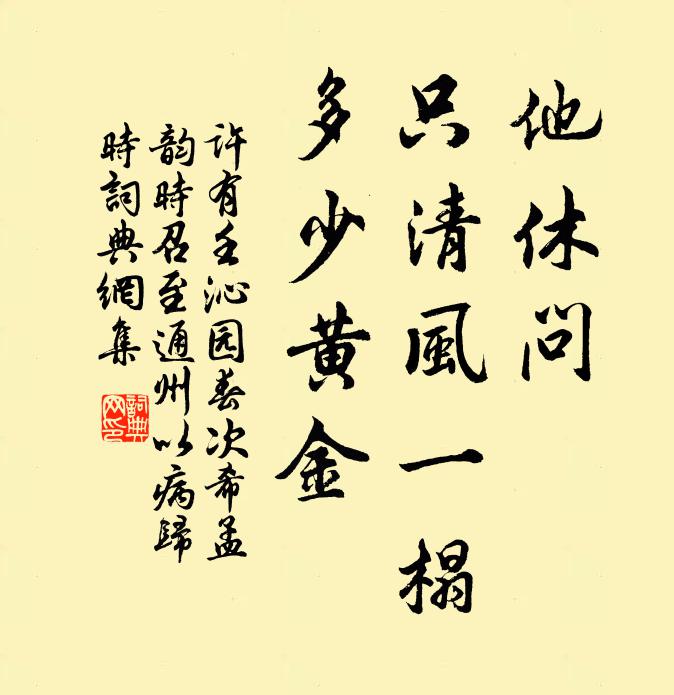 他休问
只清風一榻
多少黄金
许有壬沁园春次希孟
韵時召至通州以病歸
時詞典網集
詞典网印